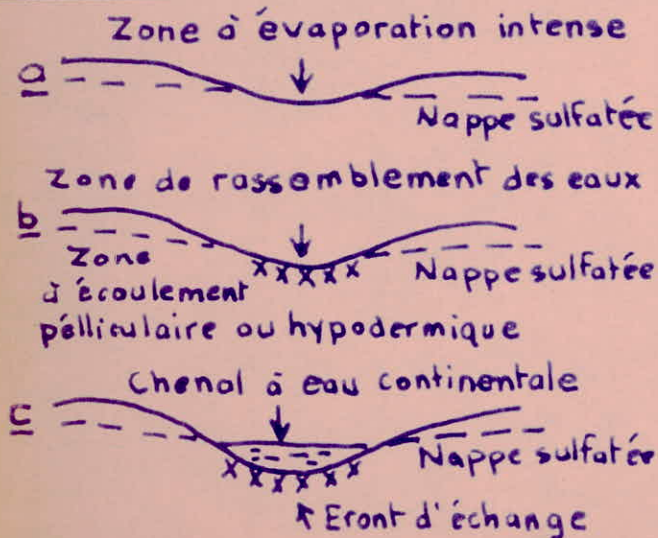 Zone à évaporation intense
a
Nappe sulfatée
Zone de rassemblement des eaux
b
Zone
à écoulement
pélliculaire ou hypodermique
Nappe sulfatée
Chenal à eau continentale
c
Nappe sulfatée
Eront d'échange